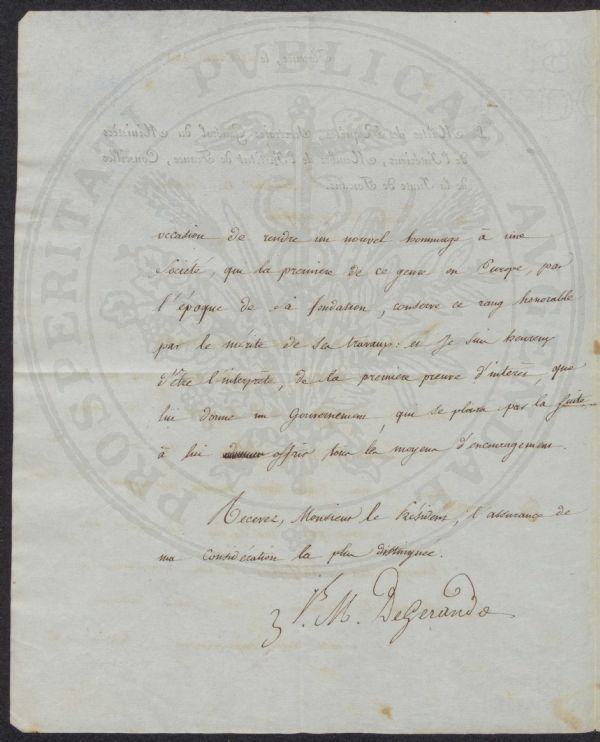 occasion de rendre un nouvel hommage à une
Société, qui la première de ce genre en Europe, par
l'époque de sa fondation, conserve ce rang honorable
par le mérite de ses travaux: et je suis heureux
d'être l'interprète, de la première preuve d'intérêt, que
lui donne un Gouvernement, qui se plaira par la suite
à lui offrir tous les moyens d'encouragement.
Recevez, Monsieur le Président, l'assurance de
ma considération la plus distinguée.
J. M. DeGerando
PROSPERITATI PUBLICAE AUGENDAE
Florence, le
Le Maître des Requêtes, Secrétaire Général du Ministère
de l'Intérieur, Membre de l'Institut de France, Conseiller
de la Junte de Toscane.